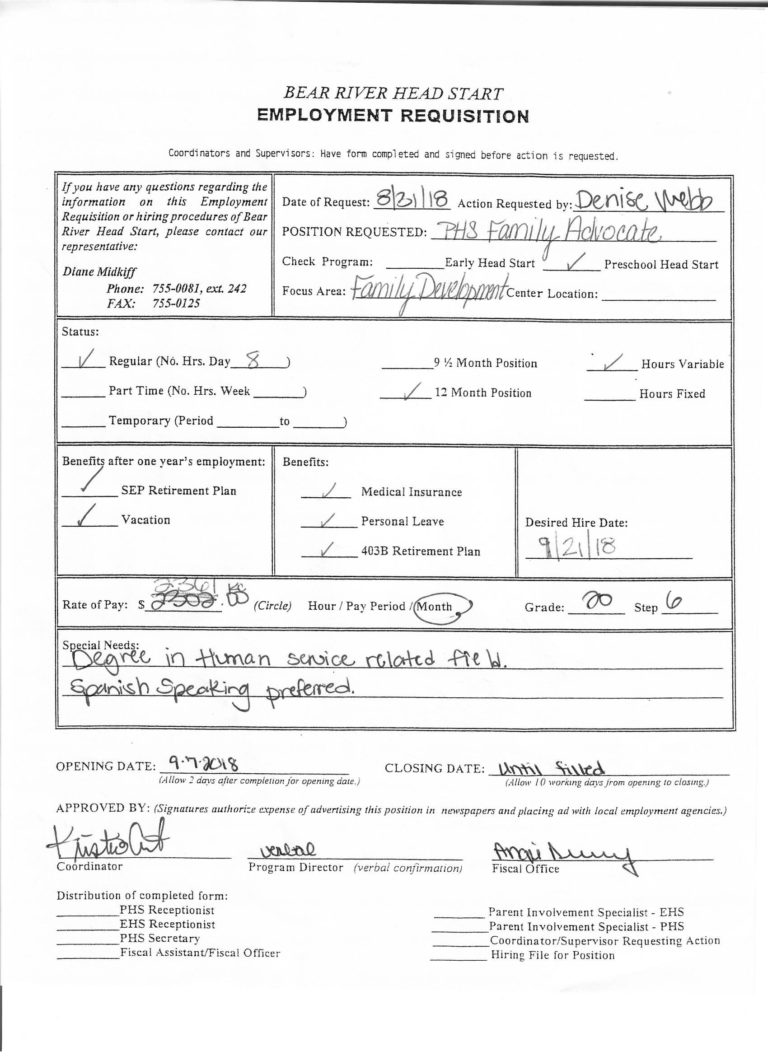 BEAR RIVER HEAD START
EMPLOYMENT REQUISITION
Coordinators and Supervisors: Have form completed and signed before action is requested.
If you have any questions regarding the information on this Employment Requisition or hiring procedures of Bear River Head Start, please contact our representative:
Diane Midkiff
Phone: 755-0081, ext. 242
FAX: 755-0125
Date of Request: 8/31/18 Action Requested by: Denise Webb
POSITION REQUESTED: PHS Family Advocate
Check Program: ______Early Head Start ✓ Preschool Head Start
Focus Area: Family Development Center Location: ______
Status:
✓ Regular (No. Hrs. Day 8 ) ______9 ½ Month Position ✓ Hours Variable
______ Part Time (No. Hrs. Week ______) ✓ 12 Month Position ______ Hours Fixed
______ Temporary (Period ______to ______)
Benefits after one year's employment:
✓ SEP Retirement Plan
✓ Vacation
Benefits:
✓ Medical Insurance
✓ Personal Leave
✓ 403B Retirement Plan
Desired Hire Date:
9/21/18
Rate of Pay: $ (Circle) Hour / Pay Period / Month Grade: 20 Step 6
Special Needs:
Degree in Human service related field.
Spanish Speaking preferred.
OPENING DATE: 9-7-2018 CLOSING DATE: Until filled
(Allow 2 days after completion for opening date.) (Allow 10 working days from opening to closing.)
APPROVED BY: (Signatures authorize expense of advertising this position in newspapers and placing ad with local employment agencies.)
verbal
Coordinator Program Director (verbal confirmation) Fiscal Office
Distribution of completed form:
______PHS Receptionist ______ Parent Involvement Specialist - EHS
______EHS Receptionist ______Parent Involvement Specialist - PHS
______PHS Secretary ______Coordinator/Supervisor Requesting Action
______Fiscal Assistant/Fiscal Officer ______ Hiring File for Position